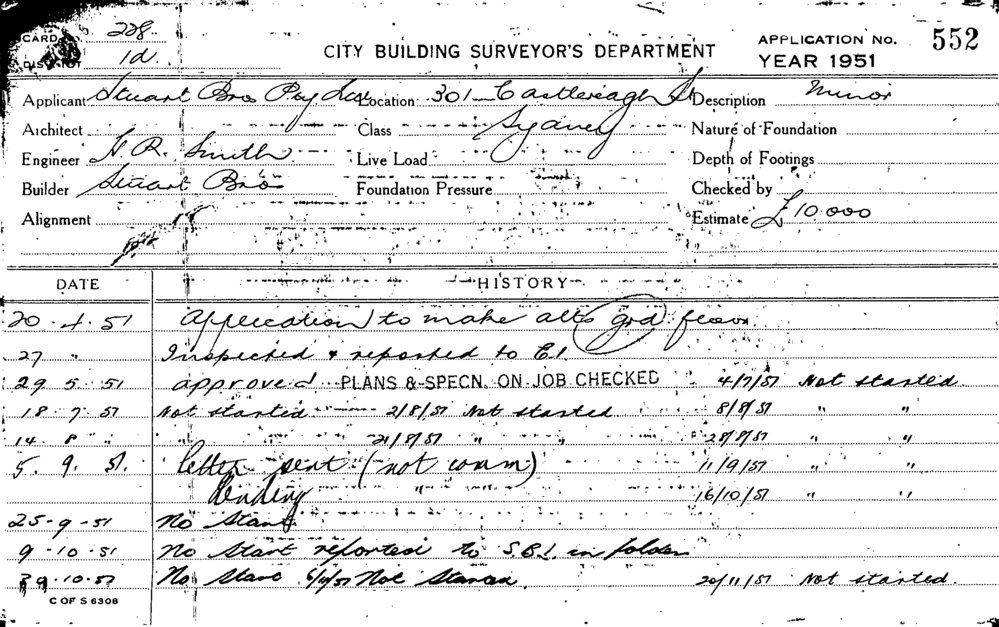 CARD 228
DISTRICT 1d.
CITY BUILDING SURVEYOR'S DEPARTMENT
APPLICATION No. 552
YEAR 1951
Applicant Stuart Bros Pty Ltd Location 301 Castlereagh St Description Minor
Architect Class Sydney Nature of Foundation
Engineer H. R. Smith Live Load Depth of Footings
Builder Stuart Bros Foundation Pressure Checked by
Alignment Estimate £10.000
DATE HISTORY
20.4.51 Application to make alts grd floor
27 " Inspected & reported to C.I.
29 5 51 approved PLANS & SPECN. ON JOB CHECKED 4/7/51 Not started
18 7 51 Not started 2/8/51 Not started 8/8/51 " "
14 8 " " 21/8/51 " " 28/8/51 " "
5. 9. 51. letter sent (not comm) 11/9/51 " "
Pending 16/10/51 " "
25-9-51 No Start
9-10-51 No Start reported to S.B.I. in folder
10.51 No Start Not Started. 20/11/51 Not started.
C OF S 6308